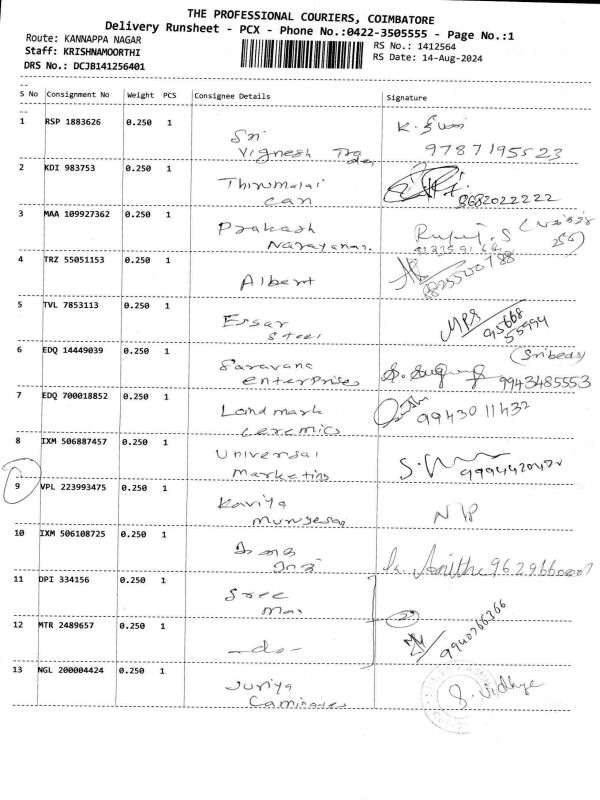 THE PROFESSIONAL COURIERS, COIMBATORE
Delivery Runsheet - PCX - Phone No.:0422-3505555 - Page No.:1
Route: KANNAPPA NAGAR
Staff: KRISHNAMOORTHI
DRS No.: DCJB141256401
RS No.: 1412564
RS Date: 14-Aug-2024
S No Consignment No Weight PCS Consignee Details Signature
1 RSP 1883626 0.250 1 Sri
Vignesh 9787195523
2 KDI 983753 0.250 1 Thirumalai
can 8682022222
3 MAA 109927362 0.250 1 Prakash
Narayanan.
4 TRZ 55051153 0.250 1 Albert
5 TVL 7853113 0.250 1 Essar
Steel MPS 95668
55994
6 EDQ 14449039 0.250 1 Saravana (Sribeds)
enterprises 9943485553
7 EDQ 700018852 0.250 1 Land mark
ceremics 9943011432
8 IXM 506887457 0.250 1 Universal
Marketing
9 VPL 223993475 0.250 1 Kaviya
Murugesan
10 IXM 506108725 0.250 1
11 DPI 334156 0.250 1 Sree
Mar
12 MTR 2489657 0.250 1 -do- 9940766366
13 NGL 200004424 0.250 1 Juriya S. Vidhya